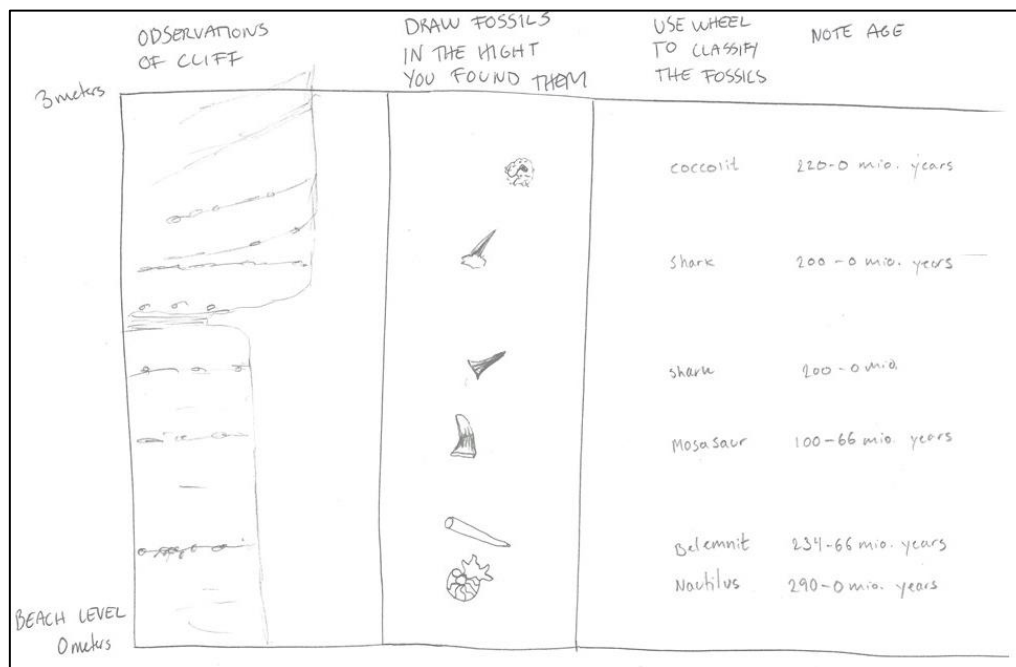 OBSERVATIONS
OF CLIFF
DRAW FOSSILS
IN THE HIGHT
YOU FOUND THEM
USE WHEEL
TO CLASSIFY
THE FOSSILS
NOTE AGE
3 meters
coccolit 220-0 mio. years
shark 200-0 mio. years
shark 200-0 mio.
Mosasaur 100-66 mio. years
Belemnit 234-66 mio. years
Nautilus 290-0 mio. years
BEACH LEVEL
0 meters